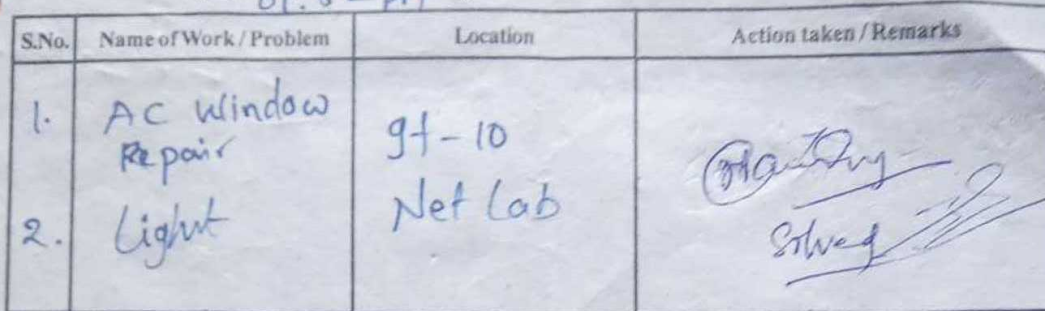 S.No. Name of Work / Problem Location Action taken / Remarks
1. AC Window
Repair
gf-10
2. Light
Net Lab
Solved